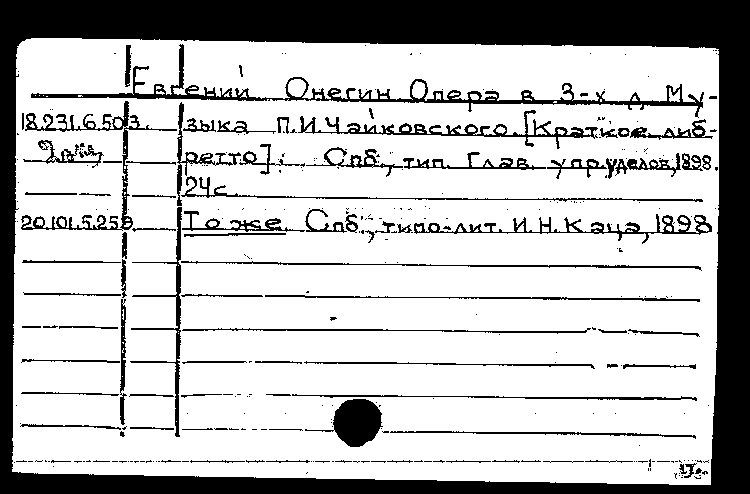 Евгений Онегин Опера в 3-х д Му-
18.231.6.503. зыка П.И.Чайковского. [Краткое либ-
ретто]. Спб., тип. Глав. упр.уделов, 1898.
24с
20.101.5.259 То же. Спб., типо-лит. И.Н.Каца, 1898